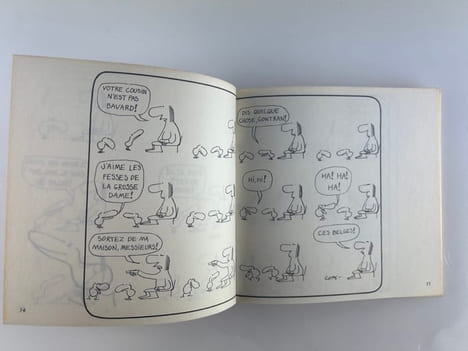 VOTRE COUSIN
N'EST PAS
BAVARD!
DIS QUELQUE
CHOSE, GONTRAN!
J'AIME LES
FESSES DE
LA GROSSE
DAME!
HI, HI!
HA! HA!
HA!
SORTEZ DE MA
MAISON, MESSIEURS!
CES BELGES!
COPI-